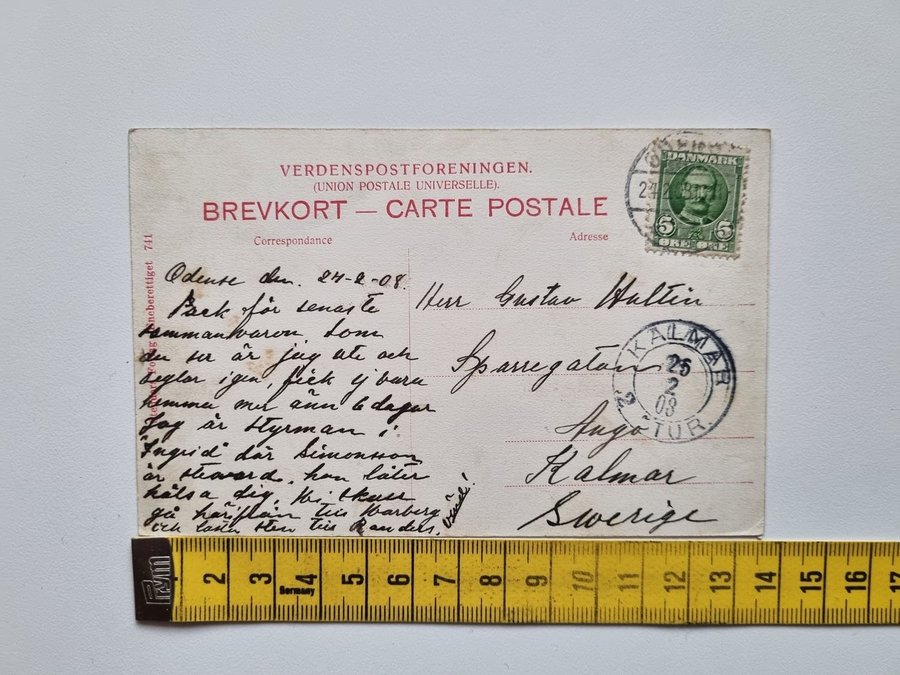 VERDENSPOSTFORENINGEN.
(UNION POSTALE UNIVERSELLE).
BREVKORT — CARTE POSTALE
Correspondance
Adresse
DANMARK
5 5
ØRE ØRE
eneberettiget 741
Odense den. 24-2-08.
Tack för senaste
sammanvaron som
du ser är jag ute och
seglar igen, fick ej vara
hemma mer änn 6 dagar
Jag är styrman i
"Ingrid" där Simonsson
är steward, han låter
hälsa dig, Vi skall
gå härifrån till Warberg
och lasta sten till Randers.
Herr Gustav Hultin
Sparregatan
Kalmar
Swerige
KALMAR
26
2
08
2 TUR.
Pym
Germany
2 3 4 5 6 7 8 9 10 11 12 13 14 15 16 17